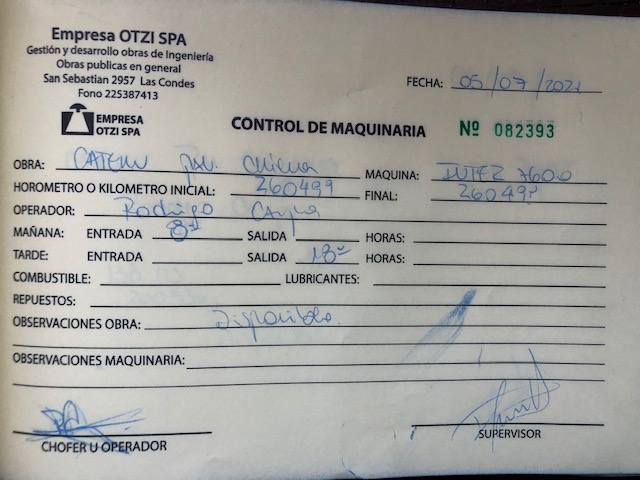 Empresa OTZI SPA
Gestión y desarrollo obras de Ingeniería
Obras publicas en general
San Sebastian 2957 Las Condes
Fono 225387413
EMPRESA
OTZI SPA
FECHA: 05/07/2021
CONTROL DE MAQUINARIA Nº 082393
OBRA: MAQUINA: 7600
HOROMETRO O KILOMETRO INICIAL: 260499 FINAL: 260499
OPERADOR: Rodrigo
MAÑANA: ENTRADA 8 SALIDA HORAS:
TARDE: ENTRADA SALIDA 18 HORAS:
COMBUSTIBLE: LUBRICANTES:
REPUESTOS:
OBSERVACIONES OBRA: Disponible.
OBSERVACIONES MAQUINARIA:
CHOFER U OPERADOR
SUPERVISOR